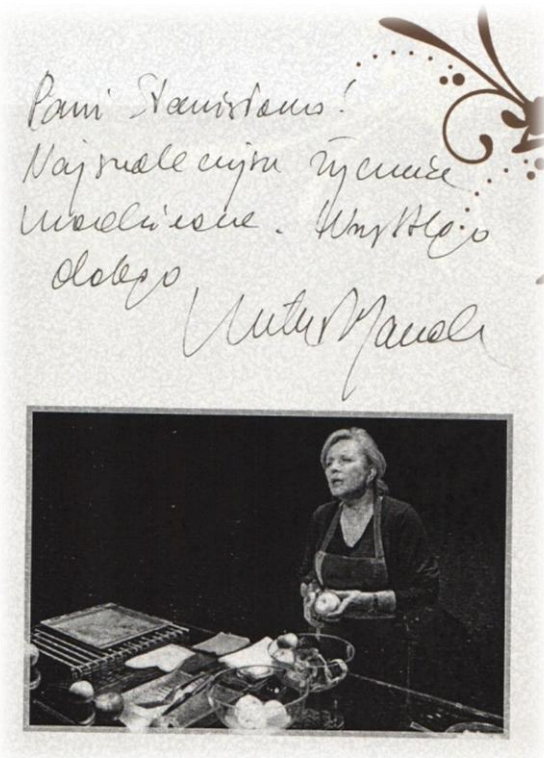 Pani Stanisławo!
Najserdeczniejsze życzenia
urodzinowe. Wszystkiego
dobrego